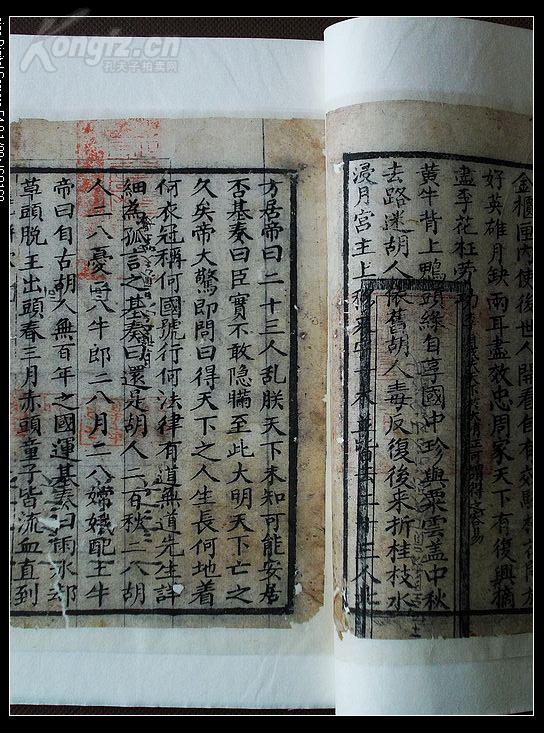 Kongfz.cn
孔夫子拍卖网
金櫃匣内使後世人開看自有
好英雄月缺兩耳盡效忠周家天下有復興摘
盡李花枉劳功
黄牛背上鴨頭綠自享國中珍與粟雲盖中秋
去路迷胡人依舊胡人毒反復後来折桂枝水
浸月宫主上 二十三人止
方居帝曰二十三人乱朕天下未知可能安居
否基奏曰臣實不敢隐瞞至此大明天下亡之
久矣帝大驚即問曰得天下之人生長何地着
何衣冠稱何國號行何法律有道無道先生詳
細為孤言之基奏曰還是胡人二百秋二八胡
人二八憂 八牛郎二八月二八嫦娥配王牛
帝曰自古胡人無百年之國運基奏曰雨水郊
草頭脱王出頭春三月赤頭童子皆流血直到